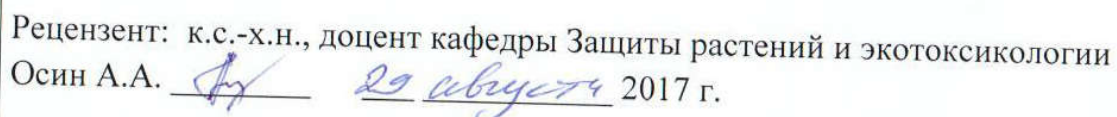 Рецензент: к.с.-х.н., доцент кафедры Защиты растений и экотоксикологии
Осин А.А. 29 августа 2017 г.